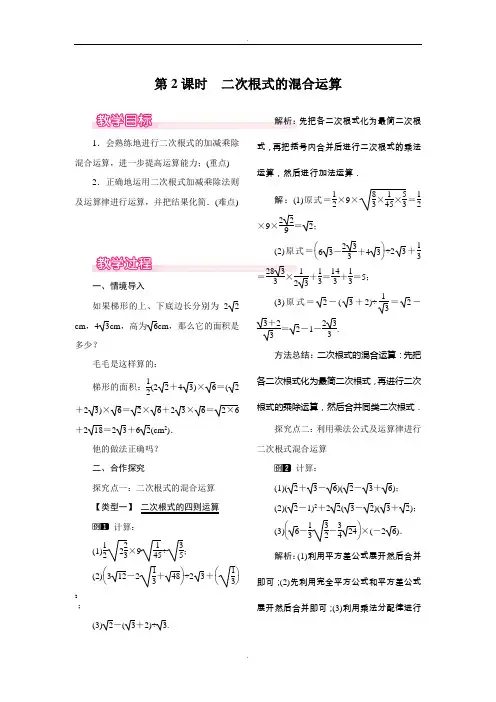 第2课时　二次根式的混合运算
教学目标
1．会熟练地进行二次根式的加减乘除
混合运算，进一步提高运算能力；(重点)
2．正确地运用二次根式加减乘除法则
及运算律进行运算，并把结果化简．(难点)
教学过程
一、情境导入
如果梯形的上、下底边长分别为 2√2
cm，4√3cm，高为√6cm，那么它的面积是
多少？
毛毛是这样算的：
梯形的面积：1/2(2√2＋4√3)×√6＝(√2
＋2√3)×√6＝√2×√6＋2√3×√6＝√(2×6)
＋2√18＝2√3＋6√2(cm²)．
他的做法正确吗？
二、合作探究
探究点一：二次根式的混合运算
【类型一】 二次根式的四则运算
例1 计算：
(1)1/2√(2 2/3)×9√(1/45)÷√(3/5)；
(2)(3√12－2√(1/3)＋√48)÷2√3＋(√(1/3))
2
；
(3)√2－(√3＋2)÷√3.
解析：先把各二次根式化为最简二次根
式，再把括号内合并后进行二次根式的乘法
运算，然后进行加法运算．
解：(1)原式＝1/2×9×√(8/3×1/45×5/3)＝1/2
×9×2√2/9＝√2；
(2)原式＝(6√3－2√3/3＋4√3)÷2√3＋1/3
＝28√3/3×1/(2√3)＋1/3＝14/3＋1/3＝5；
(3)原式＝√2－(√3＋2)÷1/√3＝√2－
(√3＋2)/√3＝√2－1－2√3/3.
方法总结：二次根式的混合运算：先把
各二次根式化为最简二次根式，再进行二次
根式的乘除运算，然后合并同类二次根式．
探究点二：利用乘法公式及运算律进行
二次根式混合运算
例2 计算：
(1)(√2＋√3－√6)(√2－√3＋√6)；
(2)(√2－1)²＋2√2(√3－√2)(√3＋√2)；
(3)(√6－1/3√(3/2)－3/4√24)×(－2√6)．
解析：(1)利用平方差公式展开然后合并
即可；(2)先利用完全平方公式和平方差公式
展开然后合并即可；(3)利用乘法分配律进行